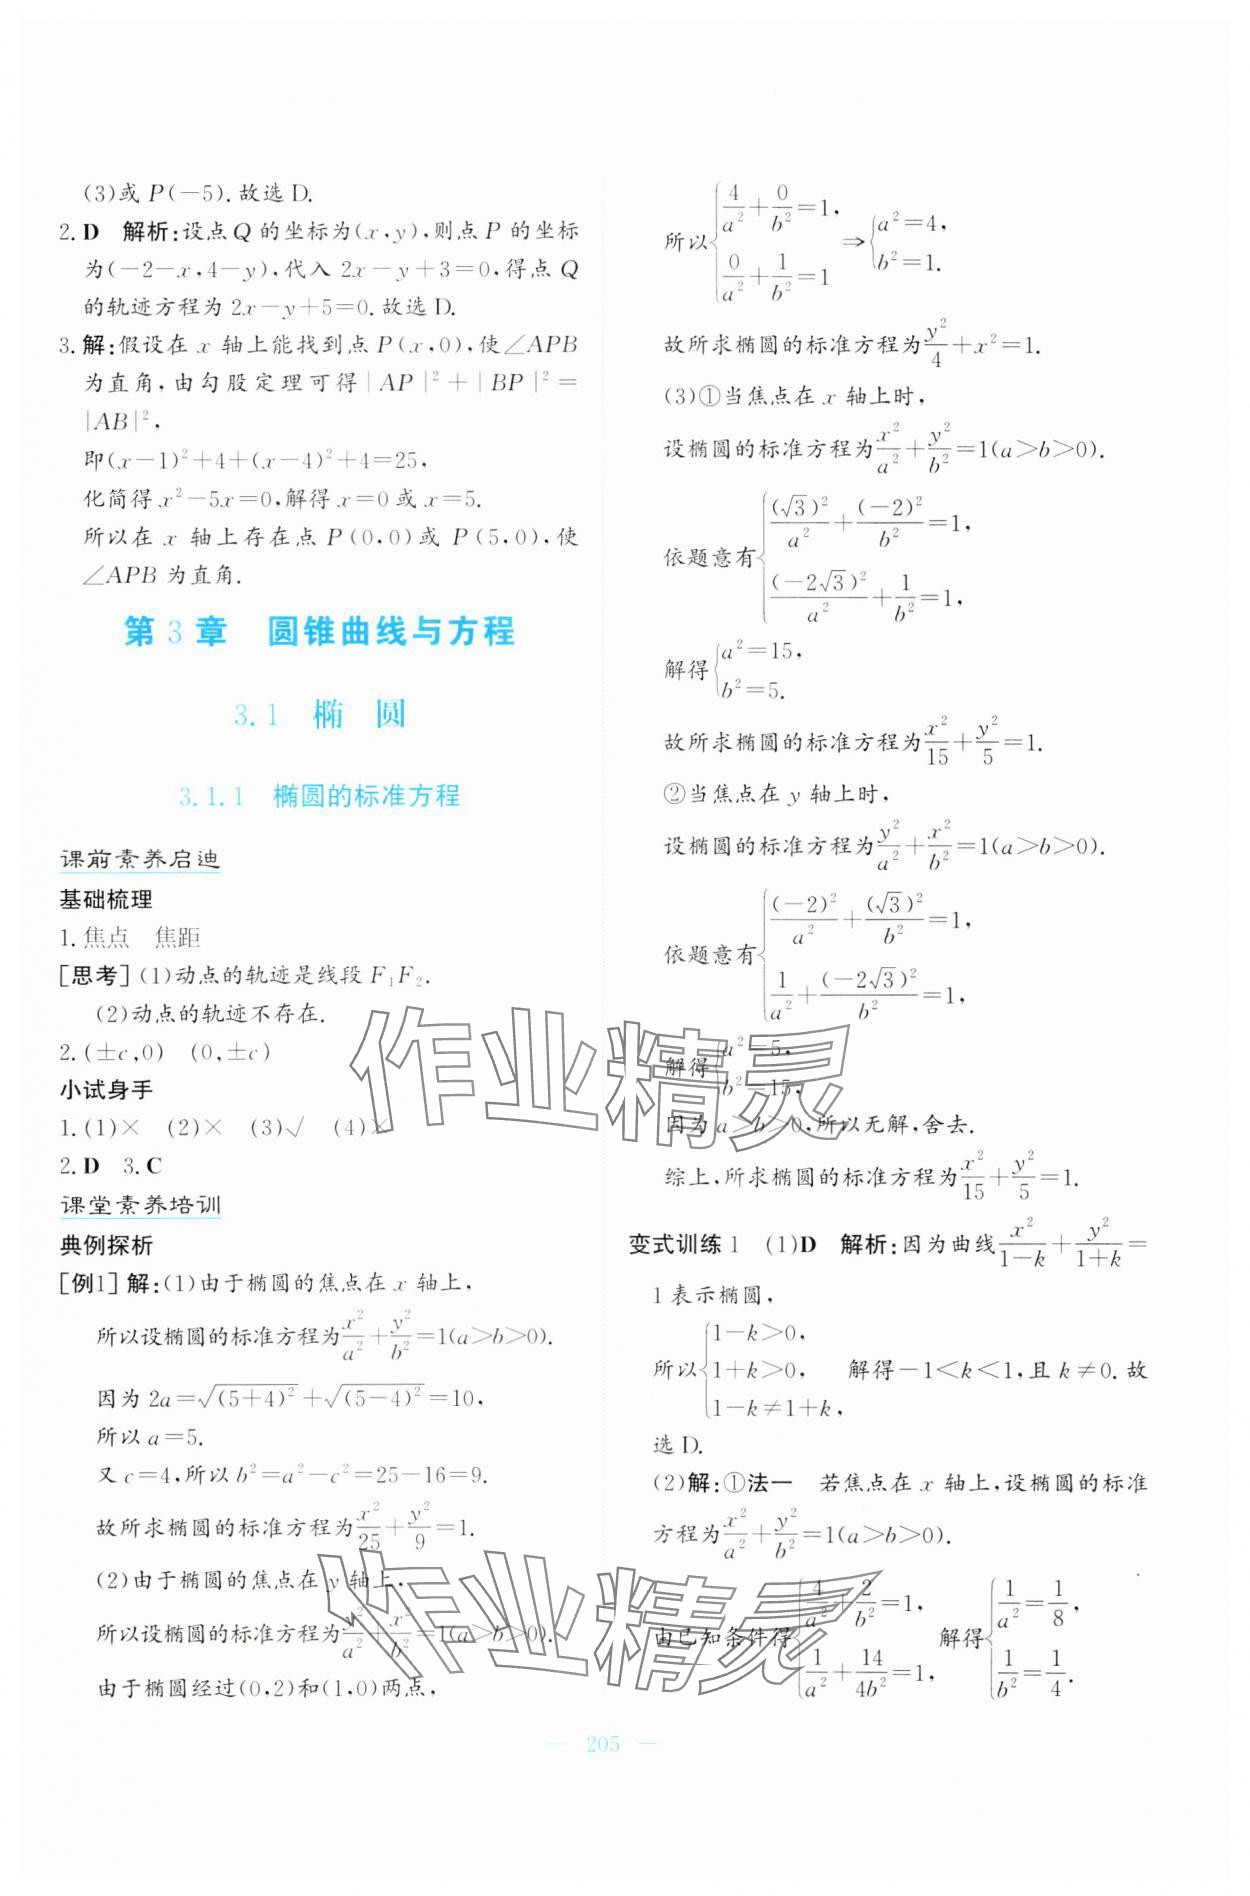 (3)或 P(－5).故选D.
2. D 解析:设点 Q 的坐标为(x,y),则点 P 的坐标
为(－2－x,4－y),代入 2x－y＋3＝0,得点 Q
的轨迹方程为 2x－y＋5＝0.故选D.
3. 解:假设在 x 轴上能找到点 P(x,0),使∠APB
为直角,由勾股定理可得|AP|²＋|BP|²＝
|AB|²,
即(x－1)²＋4＋(x－4)²＋4＝25,
化简得 x²－5x＝0,解得 x＝0 或 x＝5.
所以在 x 轴上存在点 P(0,0)或 P(5,0),使
∠APB 为直角.
第3章 圆锥曲线与方程
3.1 椭 圆
3.1.1 椭圆的标准方程
课前素养启迪
基础梳理
1. 焦点 焦距
[思考] (1)动点的轨迹是线段 F₁F₂.
(2)动点的轨迹不存在.
2. (±c,0) (0,±c)
小试身手
1. (1)× (2)× (3)√ (4)×
2. D 3. C
课堂素养培训
典例探析
[例1] 解:(1)由于椭圆的焦点在 x 轴上,
所以设椭圆的标准方程为x²/a²＋y²/b²＝1(a＞b＞0).
因为 2a＝√(5＋4)²＋√(5－4)²＝10,
所以 a＝5.
又 c＝4,所以 b²＝a²－c²＝25－16＝9.
故所求椭圆的标准方程为x²/25＋y²/9＝1.
(2)由于椭圆的焦点在 y 轴上,
所以设椭圆的标准方程为y²/a²＋x²/b²＝1(a＞b＞0).
由于椭圆经过(0,2)和(1,0)两点,
所以{4/a²＋0/b²＝1, 0/a²＋1/b²＝1 ⇒{a²＝4, b²＝1.
故所求椭圆的标准方程为y²/4＋x²＝1.
(3)①当焦点在 x 轴上时,
设椭圆的标准方程为x²/a²＋y²/b²＝1(a＞b＞0).
依题意有{(√3)²/a²＋(－2)²/b²＝1, (－2√3)²/a²＋1/b²＝1,
解得{a²＝15, b²＝5.
故所求椭圆的标准方程为x²/15＋y²/5＝1.
②当焦点在 y 轴上时,
设椭圆的标准方程为y²/a²＋x²/b²＝1(a＞b＞0).
依题意有{(－2)²/a²＋(√3)²/b²＝1, 1/a²＋(－2√3)²/b²＝1,
解得{a²＝5, b²＝15,
因为 a＞b＞0,所以无解,舍去.
综上,所求椭圆的标准方程为x²/15＋y²/5＝1.
变式训练1 (1)D 解析:因为曲线x²/1－k＋y²/1＋k＝
1 表示椭圆,
所以{1－k＞0, 1＋k＞0, 1－k≠1＋k, 解得－1＜k＜1,且 k≠0.故
选D.
(2)解:①法一 若焦点在 x 轴上,设椭圆的标准
方程为x²/a²＋y²/b²＝1(a＞b＞0).
由已知条件得{4/a²＋2/b²＝1, 1/a²＋14/4b²＝1, 解得{1/a²＝1/8, 1/b²＝1/4.
— 205 —
作业精灵
作业精灵